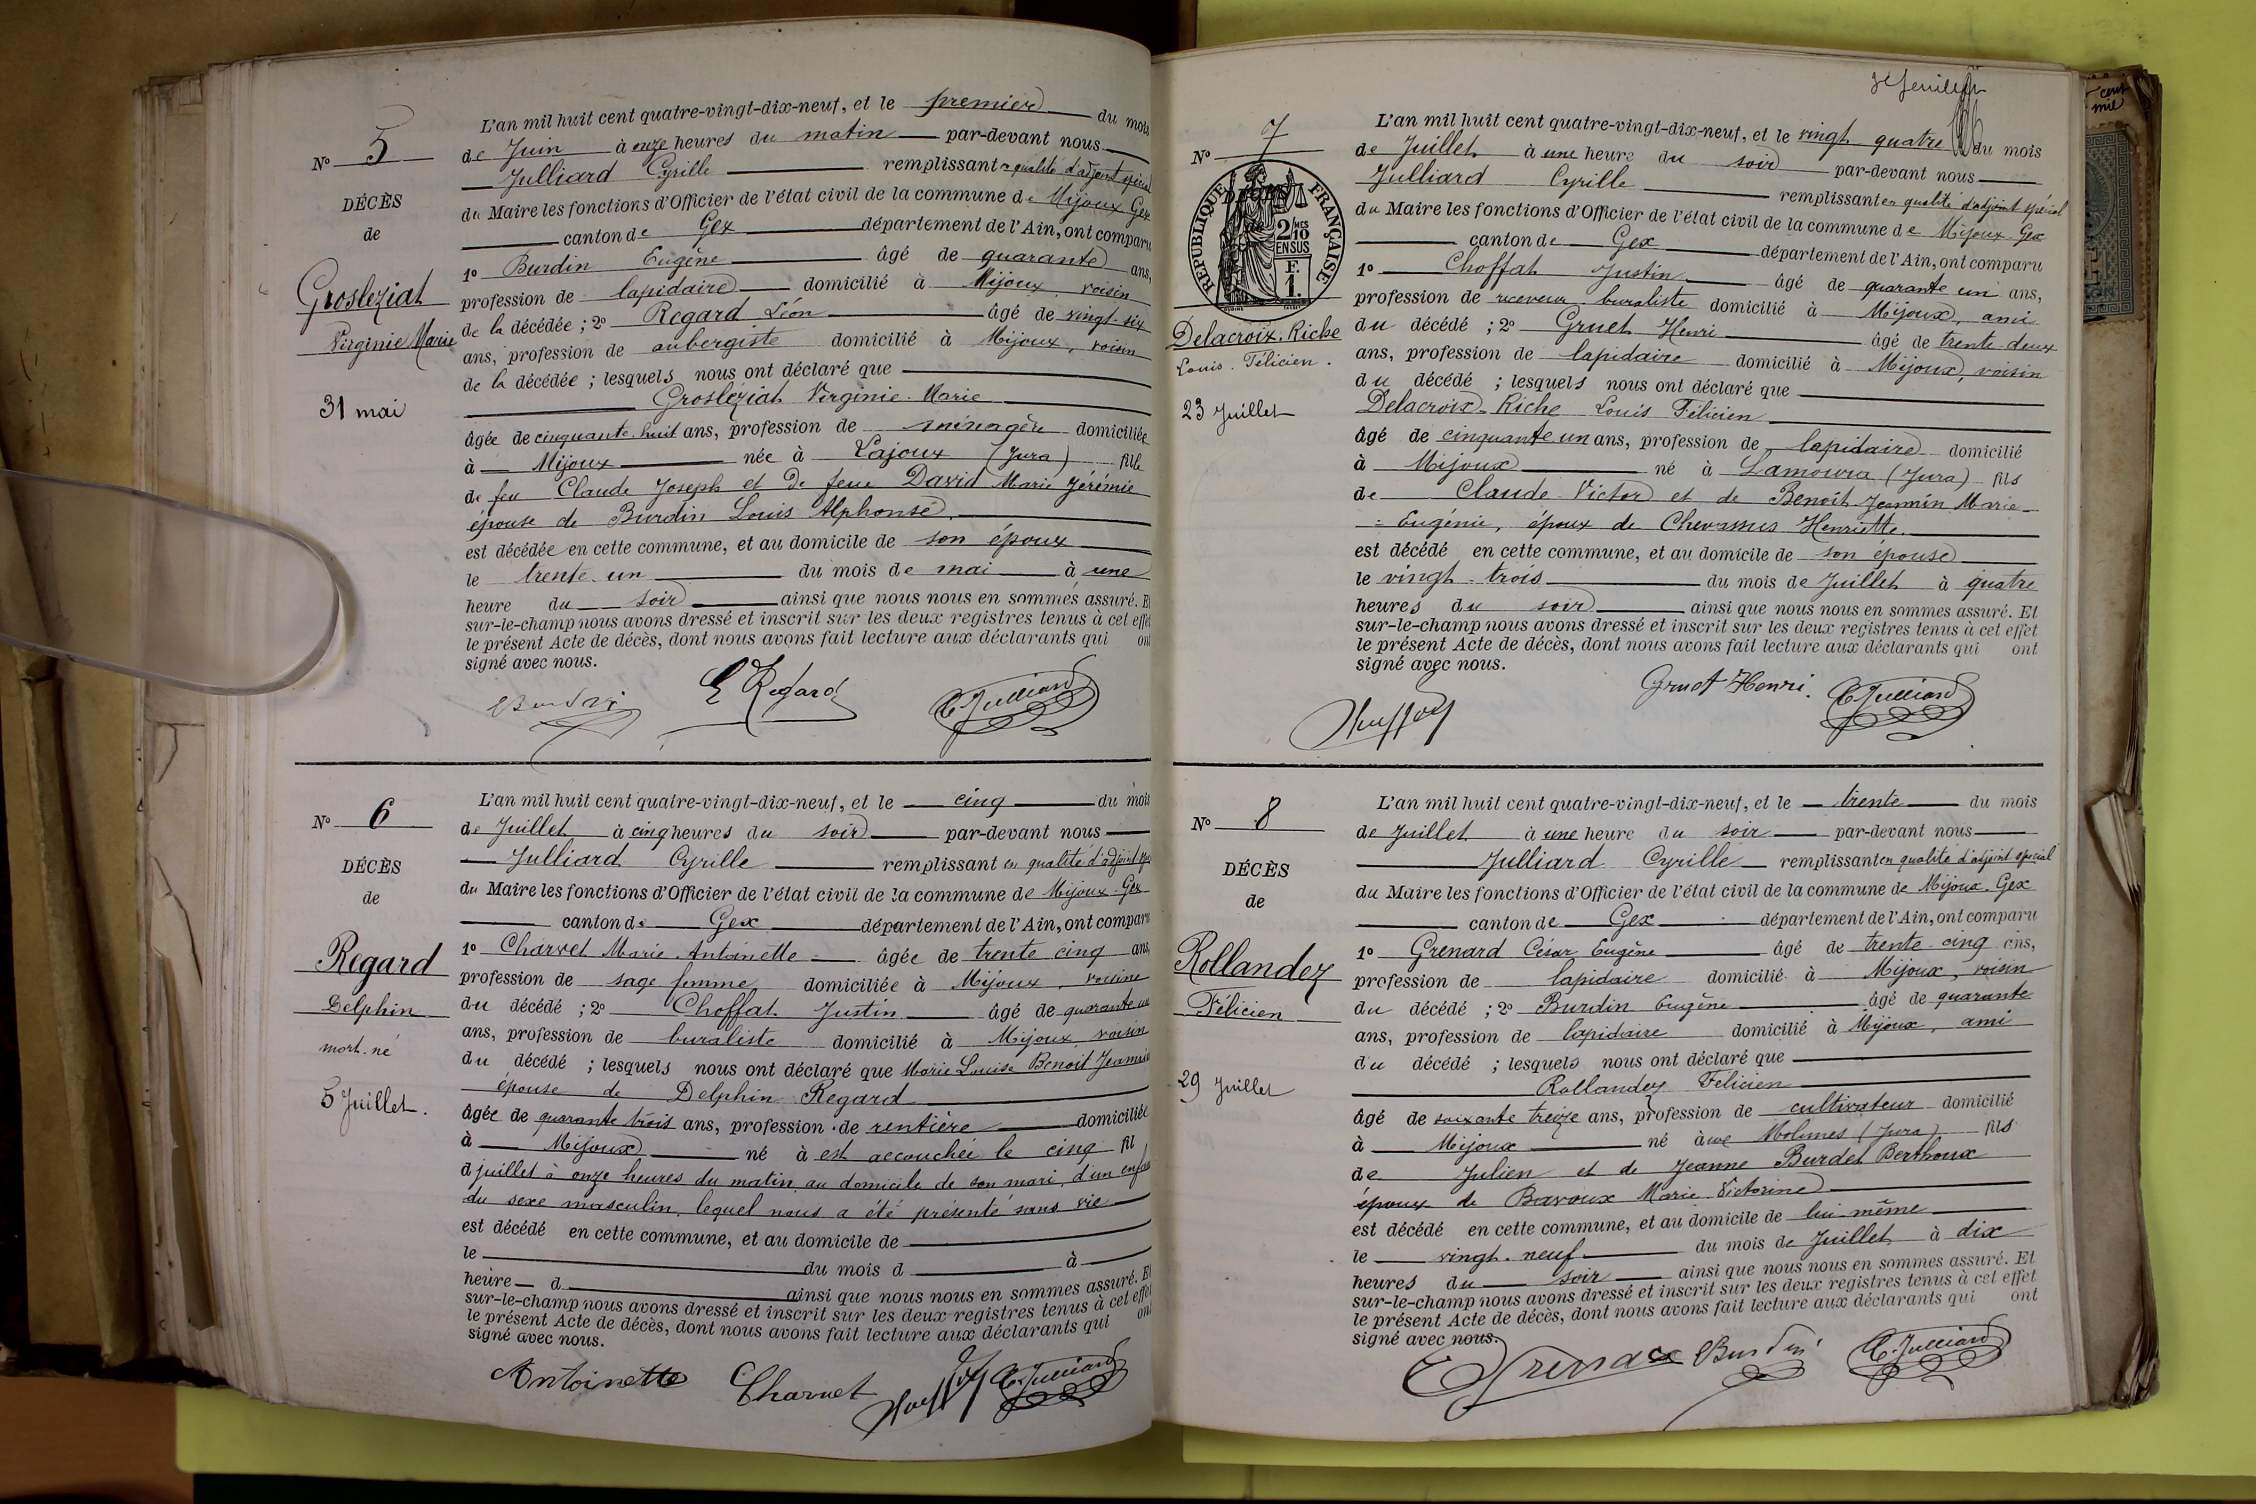 L'an mil huit cent quatre-vingt-dix-neuf, et le premier du mois
de Juin à onze heures du matin par-devant nous
Julliard Cyrille remplissant en qualité d'adjoint spécial
du Maire les fonctions d'Officier de l'état civil de la commune de Mijoux Gex
canton de Gex département de l'Ain, ont comparu
1º Burdin Eugène âgé de quarante ans,
profession de lapidaire domicilié à Mijoux voisin
de la décédée ; 2º Regard Léon âgé de vingt-six
ans, profession de aubergiste domicilié à Mijoux, voisin
de la décédée ; lesquels nous ont déclaré que
Grosleziat Virginie Marie
âgée de cinquante huit ans, profession de ménagère domiciliée
à Mijoux née à Lajoux (Jura) fille
de feu Claude Joseph et de feue David Marie Jérémie
épouse de Burdin Louis Alphonse.
est décédée en cette commune, et au domicile de son époux
le trente un du mois de mai à une
heure du soir ainsi que nous nous en sommes assuré. Et
sur-le-champ nous avons dressé et inscrit sur les deux registres tenus à cet effet
le présent Acte de décès, dont nous avons fait lecture aux déclarants qui ont
signé avec nous.
Nº 5
DÉCÈS
de
Grosleziat
Virginie Marie
31 mai
Burdin L Regard C. Julliard
Nº 6
DÉCÈS
de
Regard
Delphin
mort-né
5 Juillet.
L'an mil huit cent quatre-vingt-dix-neuf, et le cinq du mois
de Juillet à cinq heures du soir par-devant nous
Julliard Cyrille remplissant en qualité d'adjoint spé
du Maire les fonctions d'Officier de l'état civil de la commune de Mijoux-Gex
canton de Gex département de l'Ain, ont comparu
1º Charvet Marie Antoinette âgée de trente cinq ans,
profession de sage femme domiciliée à Mijoux, voisine
du décédé ; 2º Choffat Justin âgé de quarante un
ans, profession de buraliste domicilié à Mijoux voisin
du décédé ; lesquels nous ont déclaré que Marie Louise Benoit Jeannin
épouse de Delphin Regard
âgée de quarante trois ans, profession de rentière domiciliée
à Mijoux né à est accouchée le cinq fil
d juillet à onze heures du matin au domicile de son mari, d'un enfant
du sexe masculin, lequel nous a été présenté sans vie
est décédé en cette commune, et au domicile de
le du mois d à
heure d ainsi que nous nous en sommes assuré. Et
sur-le-champ nous avons dressé et inscrit sur les deux registres tenus à cet effet
le présent Acte de décès, dont nous avons fait lecture aux déclarants qui ont
signé avec nous.
Antoinette Charvet Choffat C. Julliard
3e feuillet
Nº 7
RÉPUBLIQUE FRANÇAISE
2/10 MES
EN SUS
F.
1.
Delacroix-Riche
Louis Félicien.
23 Juillet
L'an mil huit cent quatre-vingt-dix-neuf, et le vingt quatre du mois
de Juillet à une heure du soir par-devant nous
Julliard Cyrille remplissant en qualité d'adjoint spécial
du Maire les fonctions d'Officier de l'état civil de la commune de Mijoux-Gex
canton de Gex département de l'Ain, ont comparu
1º Choffat Justin âgé de quarante un ans,
profession de receveur buraliste domicilié à Mijoux, ami
du décédé ; 2º Gruet Henri âgé de trente-deux
ans, profession de lapidaire domicilié à Mijoux, voisin
du décédé ; lesquels nous ont déclaré que
Delacroix-Riche Louis Félicien
âgé de cinquante un ans, profession de lapidaire domicilié
à Mijoux né à Lamoura (Jura) fils
de Claude Victor et de Benoit-Jeannin Marie-
=Eugénie, époux de Chevassus Henriette.
est décédé en cette commune, et au domicile de son épouse
le vingt-trois du mois de Juillet à quatre
heures du soir ainsi que nous nous en sommes assuré. Et
sur-le-champ nous avons dressé et inscrit sur les deux registres tenus à cet effet
le présent Acte de décès, dont nous avons fait lecture aux déclarants qui ont
signé avec nous.
Choffat Gruet Henri. C. Julliard
Nº 8
DÉCÈS
de
Rollandez
Félicien
29 Juillet
L'an mil huit cent quatre-vingt-dix-neuf, et le trente du mois
de Juillet à une heure du soir par-devant nous
Julliard Cyrille remplissant en qualité d'adjoint spécial
du Maire les fonctions d'Officier de l'état civil de la commune de Mijoux-Gex
canton de Gex département de l'Ain, ont comparu
1º Grenard César Eugène âgé de trente cinq ans,
profession de lapidaire domicilié à Mijoux, voisin
du décédé ; 2º Burdin Eugène âgé de quarante
ans, profession de lapidaire domicilié à Mijoux, ami
du décédé ; lesquels nous ont déclaré que
Rollandez Félicien
âgé de soixante treize ans, profession de cultivateur domicilié
à Mijoux né aux Molunes (Jura) fils
de Julien et de Jeanne Burdet Berthoux
époux de Bavoux Marie-Victorine
est décédé en cette commune, et au domicile de lui même
le vingt-neuf du mois de Juillet à dix
heures du soir ainsi que nous nous en sommes assuré. Et
sur-le-champ nous avons dressé et inscrit sur les deux registres tenus à cet effet
le présent Acte de décès, dont nous avons fait lecture aux déclarants qui ont
signé avec nous.
Grenard Burdin C. Julliard